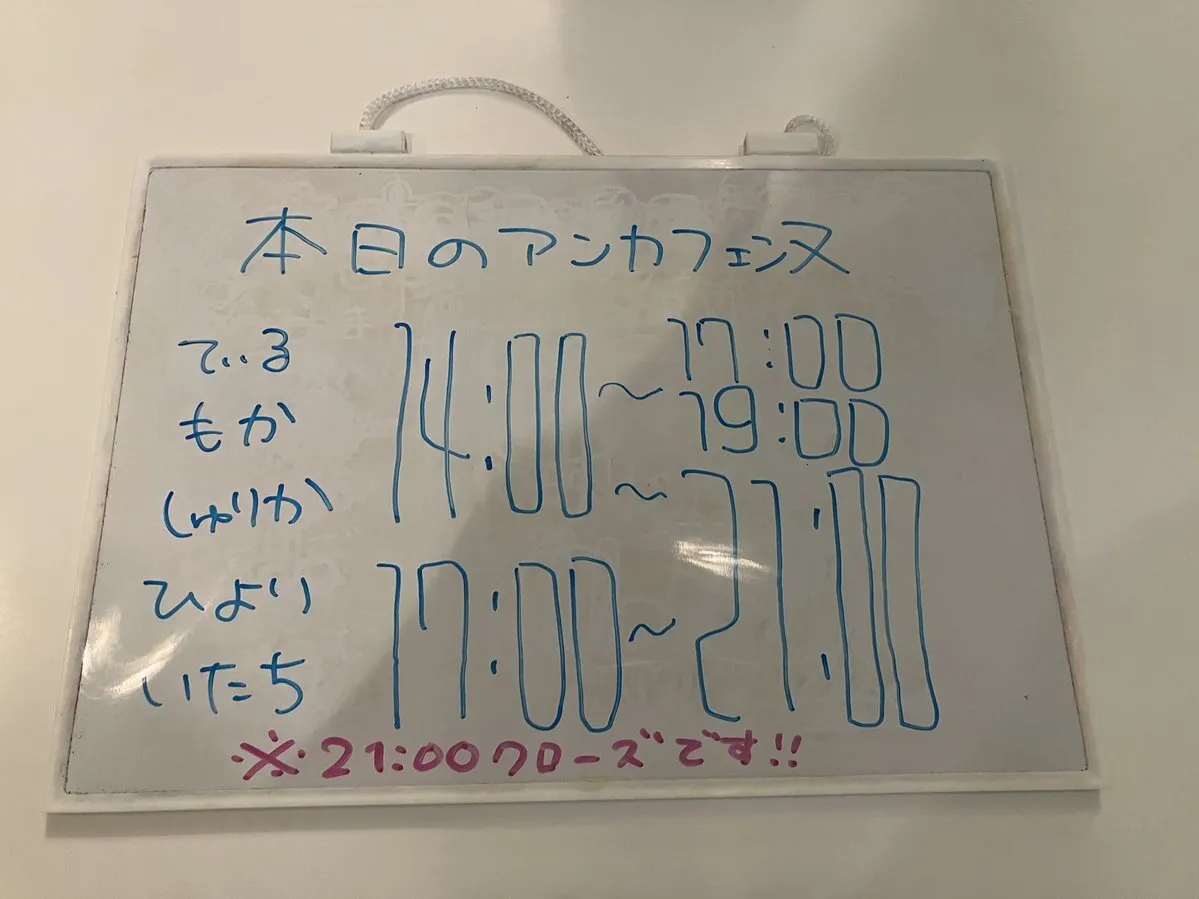 本日のアンカフェンヌ
てぃる 14:00 ~ 17:00
もか 19:00
しゅりか ~ 21:00
ひより 17:00 ~
いたち
※21:00クローズです!!